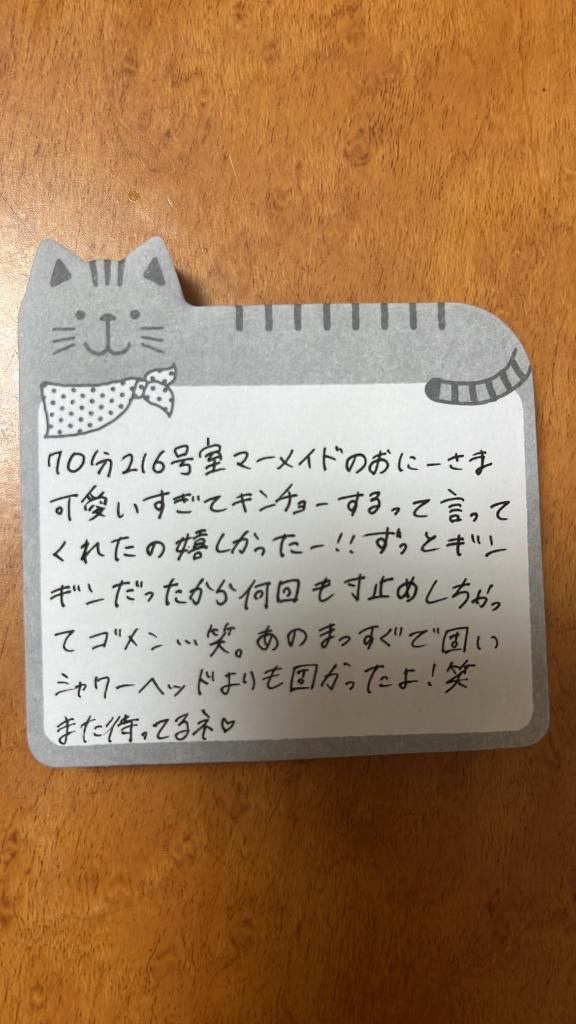 70分216号室マーメイドのおにーさま
可愛いすぎてキンチョーするって言って
くれたの嬉しかったー!!ずっとギン
ギンだったから何回も寸止めしちゃっ
てゴメン…笑。あのまっすぐで固い
シャワーヘッドよりも固かったよ!笑
また待ってるネ♡